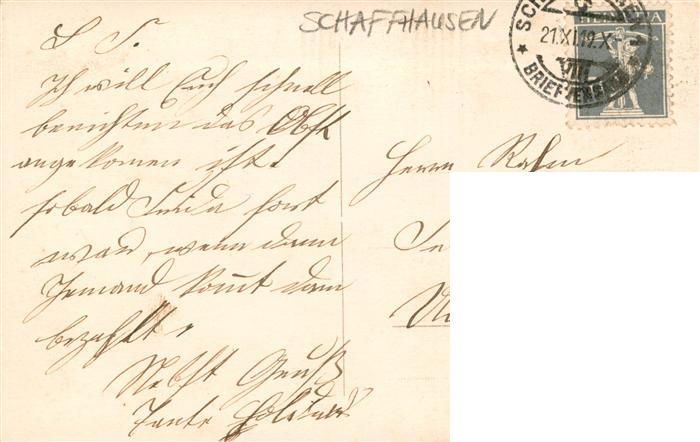 SCHAFFHAUSEN
21.XI.19.X
BRIEF
L S.
Ich will Euch schnell
berichten das Obst
angekomen ist.
sobald Linda fort
war, wenn dann
Jemand komt dan
bezahlt.
Nebst Gruß
Tante
Herrn Rahm
In